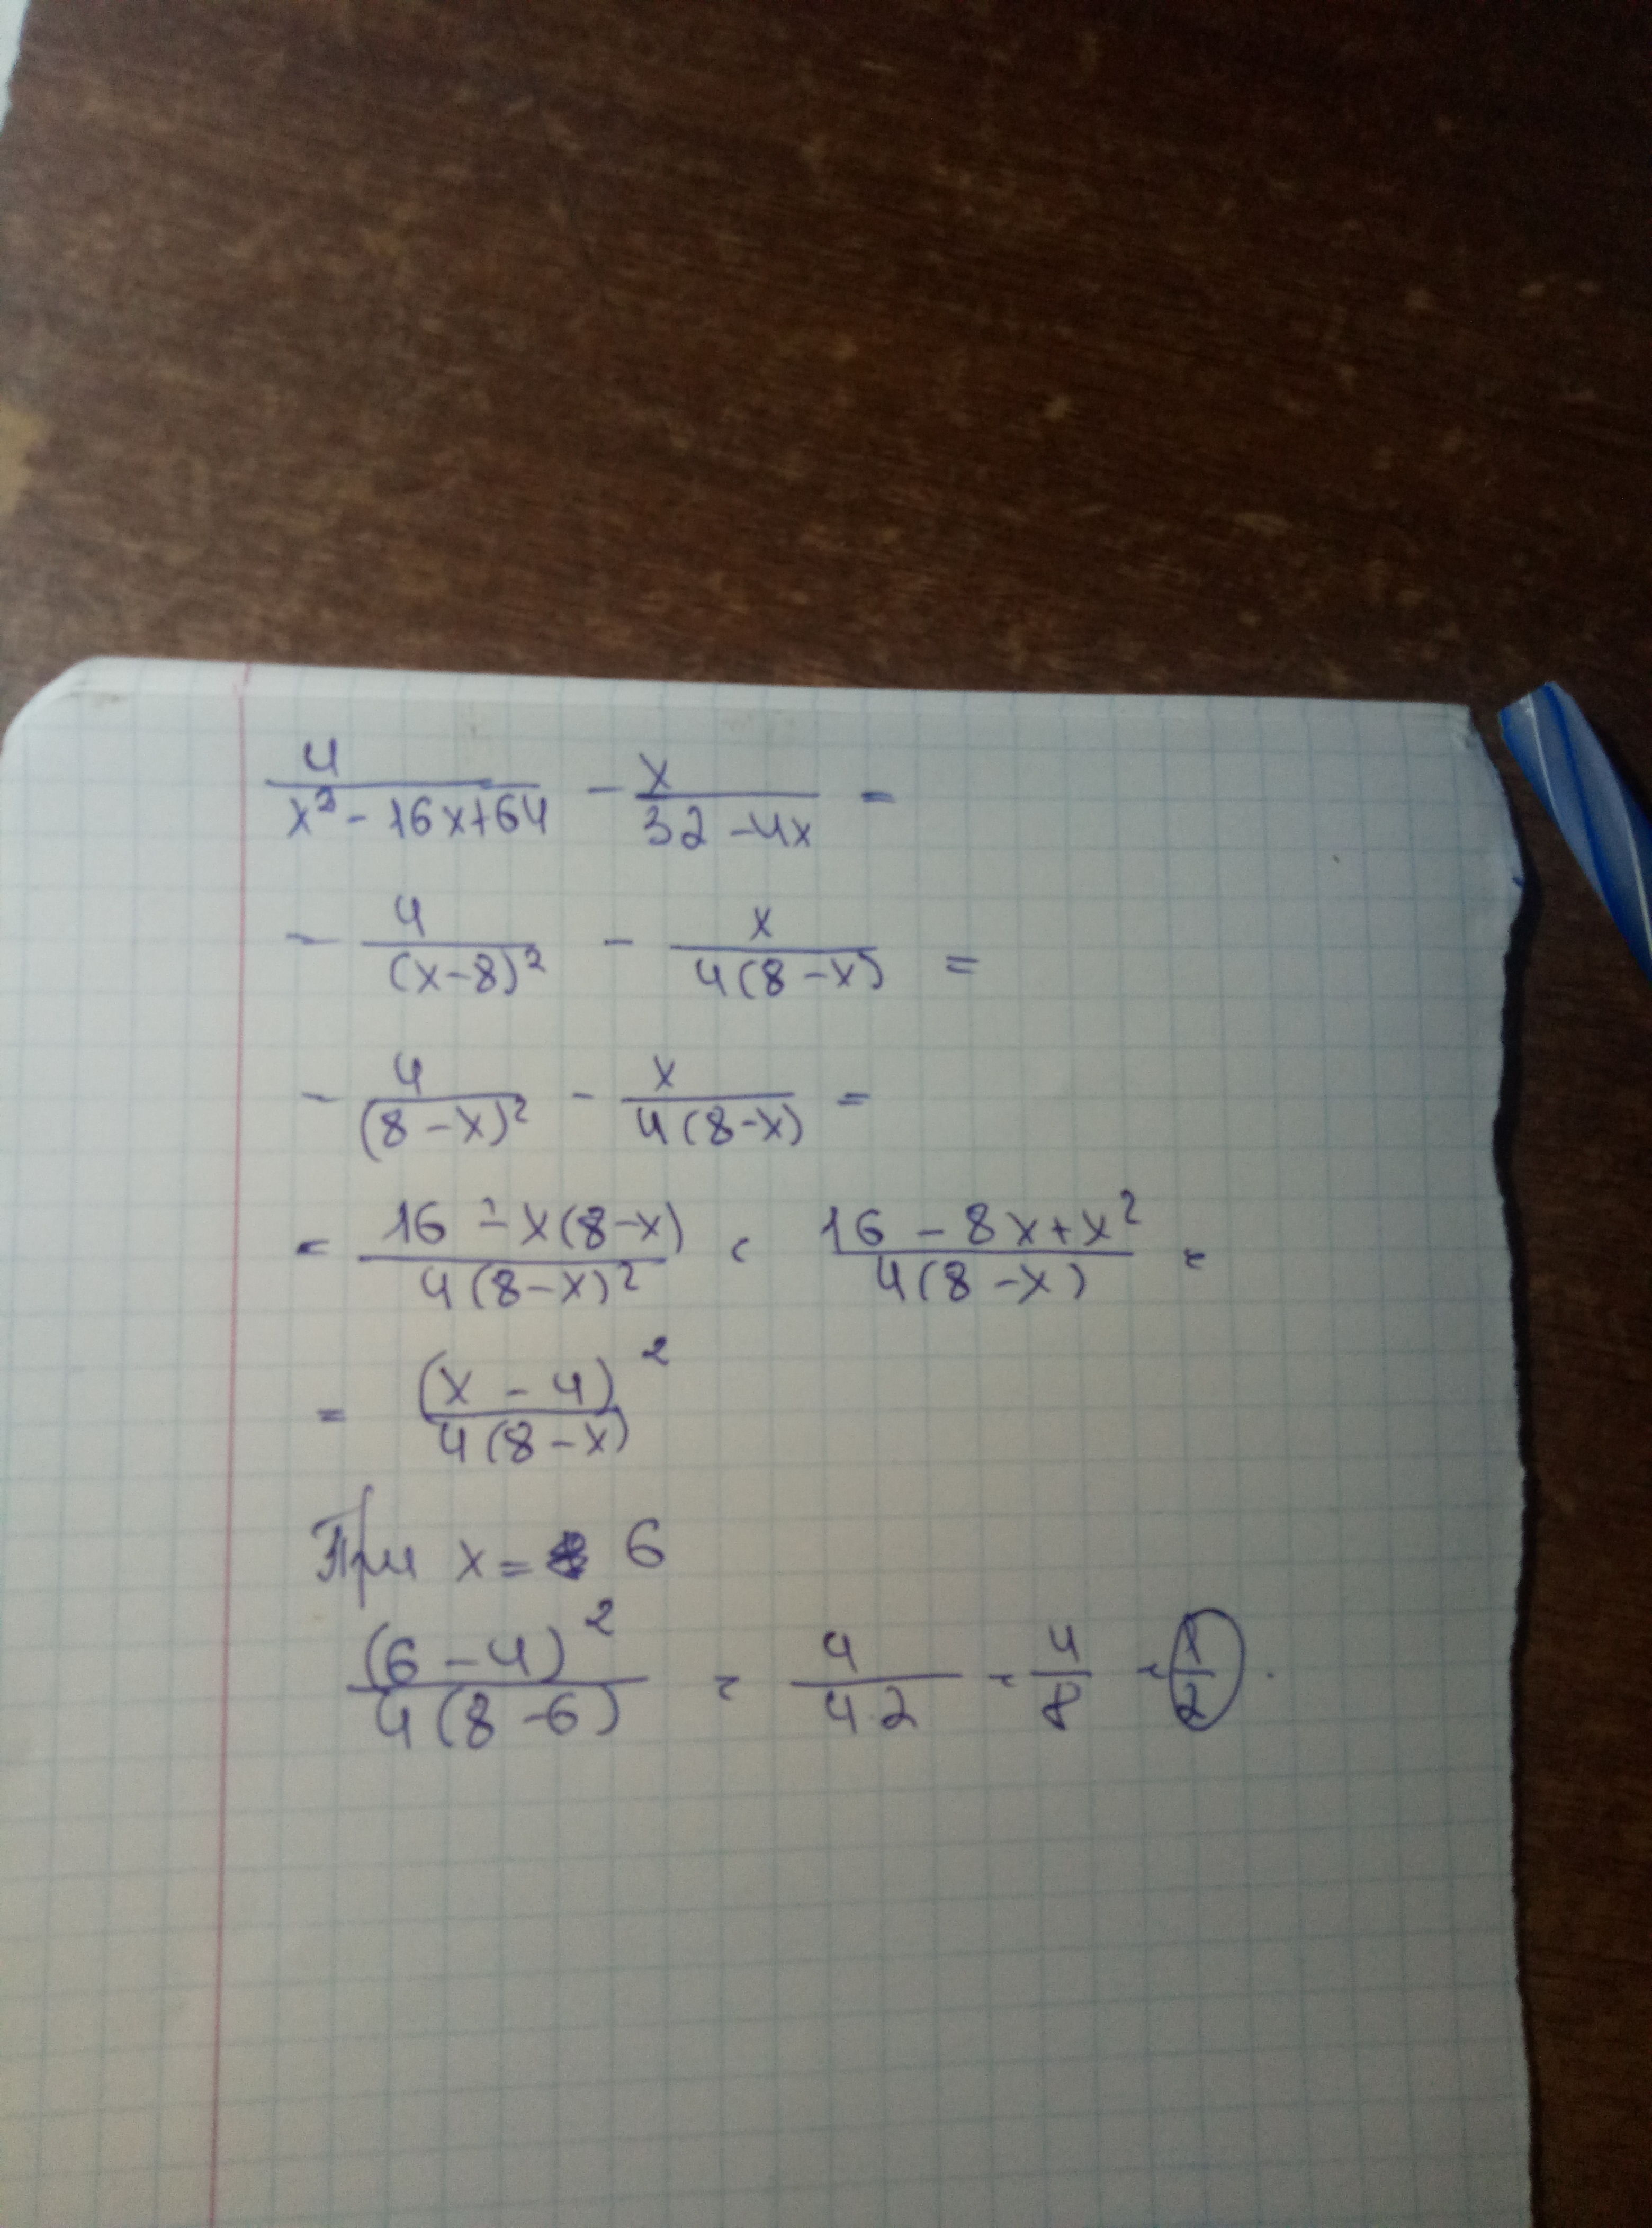 4/(x² - 16x + 64) - x/(32 - 4x) =
- 4/(x - 8)² - x/(4(8 - x)) =
- 4/(8 - x)² - x/(4(8 - x)) =
= (16 - x(8 - x))/(4(8 - x)²) = (16 - 8x + x²)/(4(8 - x)) =
= (x - 4)²/(4(8 - x))
При x = 6
(6 - 4)²/(4(8 - 6)) = 4/(4·2) = 4/8 = 1/2.